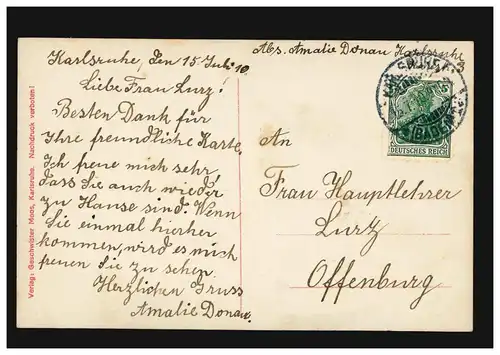 Abs. Amalie Donau Karlsruhe
Karlsruhe, den 15 Juli 10
Liebe Frau Lurz!
Besten Dank für
Ihre freundliche Karte.
Ich freue mich sehr,
dass Sie auch wieder
zu Hause sind. Wenn
Sie einmal hierher
kommen, wird es mich
freuen Sie zu sehen.
Herzlichen Gruss
Amalie Donau
An
Frau Hauptlehrer
Lurz
Offenburg
(BADEN)
DEUTSCHES REICH
Verlag: Geschwister Moos, Karlsruhe. Nachdruck verboten!